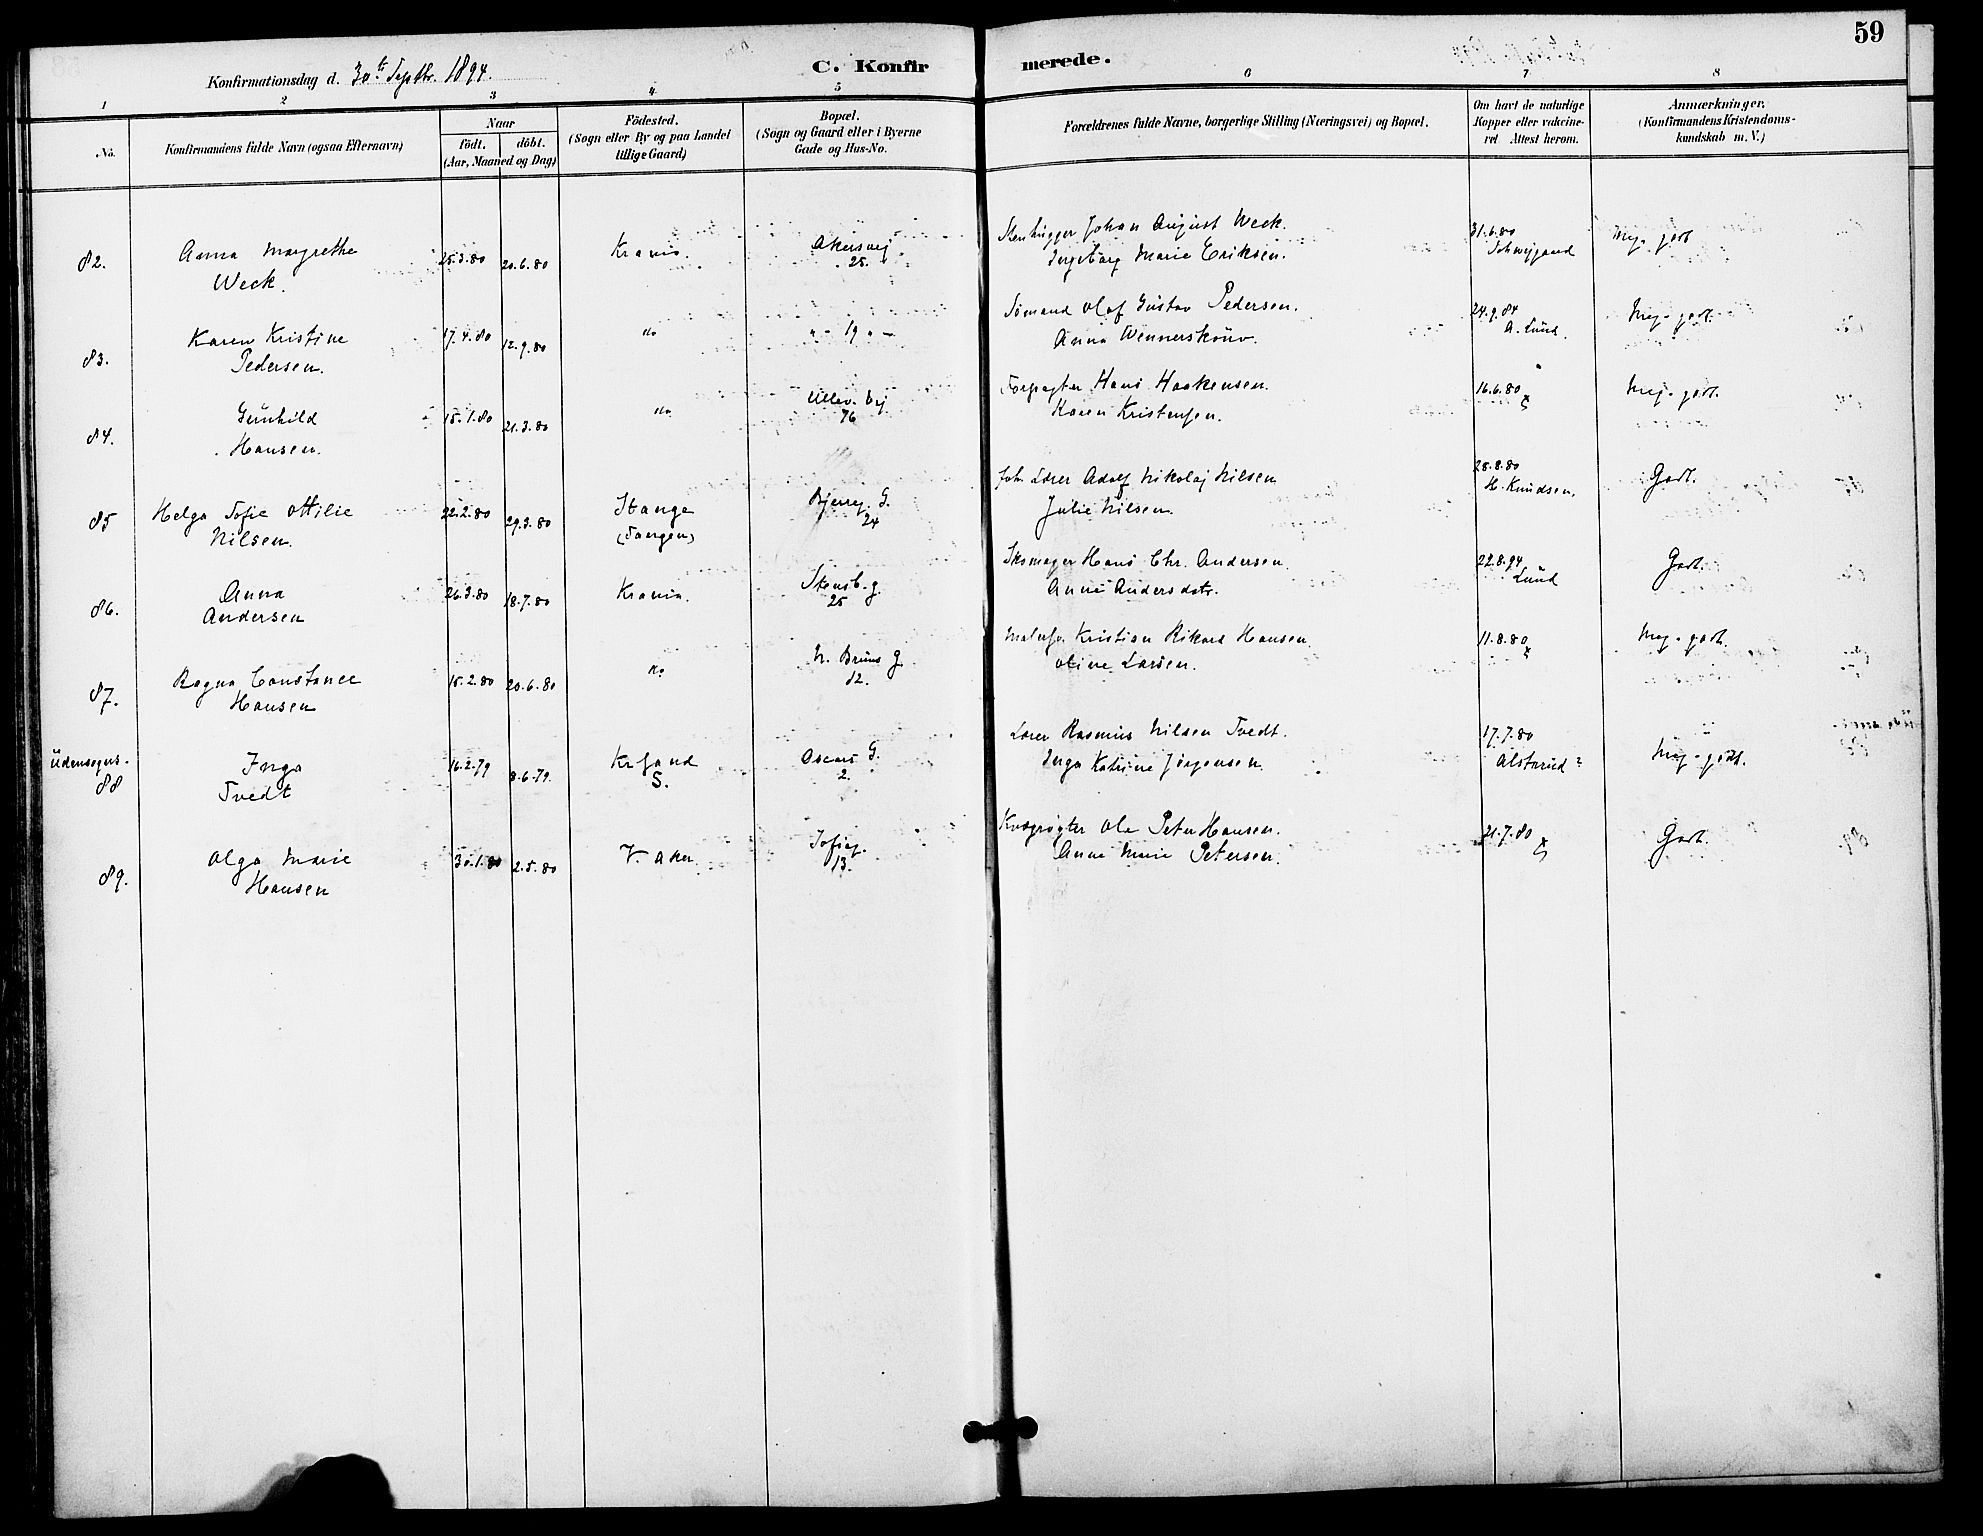 59
Konfirmationsdag d. 30te Septbr. 1894.
C. Konfirmerede.
1 2 3 4 5 6 7 8
No.
Konfirmandens fulde Navn (ogsaa Efternavn)
Naar
födt. döbt.
(Aar, Maaned og Dag)
Födested.
(Sogn eller By og paa Landet
tillige Gaard)
Bopæl.
(Sogn og Gaard eller i Byerne
Gade og Hus-No.
Forældrenes fulde Navne, borgerlige Stilling (Næringsvei) og Bopæl.
Om havt de naturlige
Kopper eller vakcine-
ret Attest herom.
Anmærkninger.
(Konfirmandens Kristendoms-
kundskab m. V.)
82. Anna Margrethe 25.3.80 20.6.80 Krania. Akersvej Stenhugger Johan August Weck. 31.6.80 Meg. godt
Weck. 25. Ingeborg Marie Eriksen. Schwejgaard
83. Karen Kristine 17.4.80 12.9.80 do " - 19 " - Sömand Olaf Gustav Pedersen. 24.9.84 Meg. godt.
Pedersen. Anna Wennerskouv. A. Lund.
84. Gunhild 15.1.80 21.3.80 do Ullev. vej Forpagter Hans Haakensen. 16.6.80 Meg. godt.
Hansen. 76 Karen Kristensen.
85 Helga Sofie Ottilie 22.2.80 29.3.80 Stange Bjerreg. G. Lærer Adolf Nikolaj Nilsen 28.8.80 Godt.
Nilsen. (Tangen) 24 Julie Nilsen. H. Knudsen.
86. Anna 26.3.80 18.7.80 Krania. Stensb. g. Skomager Hans Chr. Andersen 22.8.94 Godt.
Andersen 25 Anne Andersdatr. Lund
87. Ragna Constance 15.2.80 20.6.80 do N. Bruns g. Kristian Rikard Hansen 11.8.80 Meg. godt.
Hansen 12. Oline Larsen.
Udensogns. Inga 16.2.79 8.6.79. Krsand Oscars G. Lærer Rasmus Nilsen Tvedt. 17.7.80 Meg. godt.
88 Tvedt S. 2. Inga Katrine Jörgensen. Alstrud?
89. Olga Marie 30.1.80 2.5.80 V. Aker Sofieg. Kvægrögter Ole Peter Hansen. 21.7.80 Godt.
Hansen 13. Anne Marie Petersen.